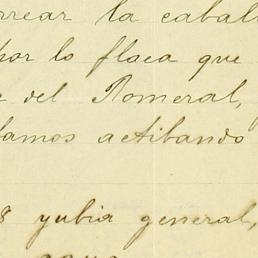 rrear la caball
por lo flaca que
e del Romeral,
tamos actibando
8 yubia general,
agua